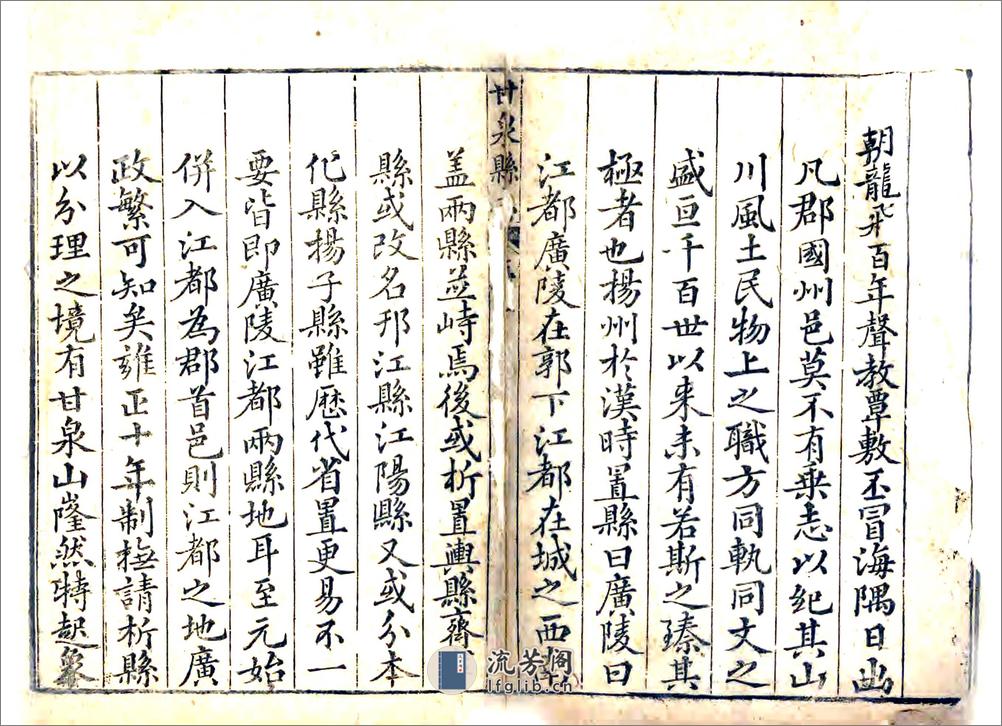 朝龍飛百年聲教覃敷丕冒海隅日出
凡郡國州邑莫不有乗志以紀其山
川風土民物上之職方同軌同文之
盛亘千百世以来未有若斯之臻其
極者也揚州於漢時置縣曰廣陵曰
江都廣陵在郭下江都在城之西
甘泉縣
盖兩縣並峙焉後或析置輿縣齊
縣或改名邗江縣江陽縣又或分本
化縣揚子縣雖歷代省置更易不一
要皆即廣陵江都兩縣地耳至元始
併入江都為郡首邑則江都之地廣
政繁可知矣雍正十年制撫請析縣
以分理之境有甘泉山隆然特起
流芳阁
lfglib.cn